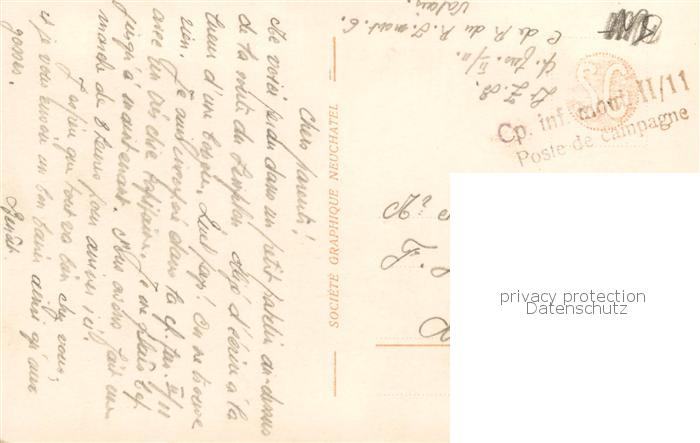 Chers parents!
Me voici perdu dans un petit patelin au-dessus
de la route du Simplon déjà j'écris à la
lueur d'une bougie. Quel pays! On ne trouve
rien. Je suis incorporé dans la cp. fus. II/11
avec un très chic capitaine. Je me plais
jusqu'à maintenant. Nous avons fait une
marche de 8 heures pour arriver ici.
J'espère que tout va bien chez vous;
et je vous envoie un bon baiser ainsi qu'aux
gosses.
SOCIÉTÉ GRAPHIQUE NEUCHATEL
Cp. fus. II/11
C de P. du R. I. mont. 6.
Valais.
SG
Cp. inf. mont. II/11
Poste de campagne
privacy protection
Datenschutz